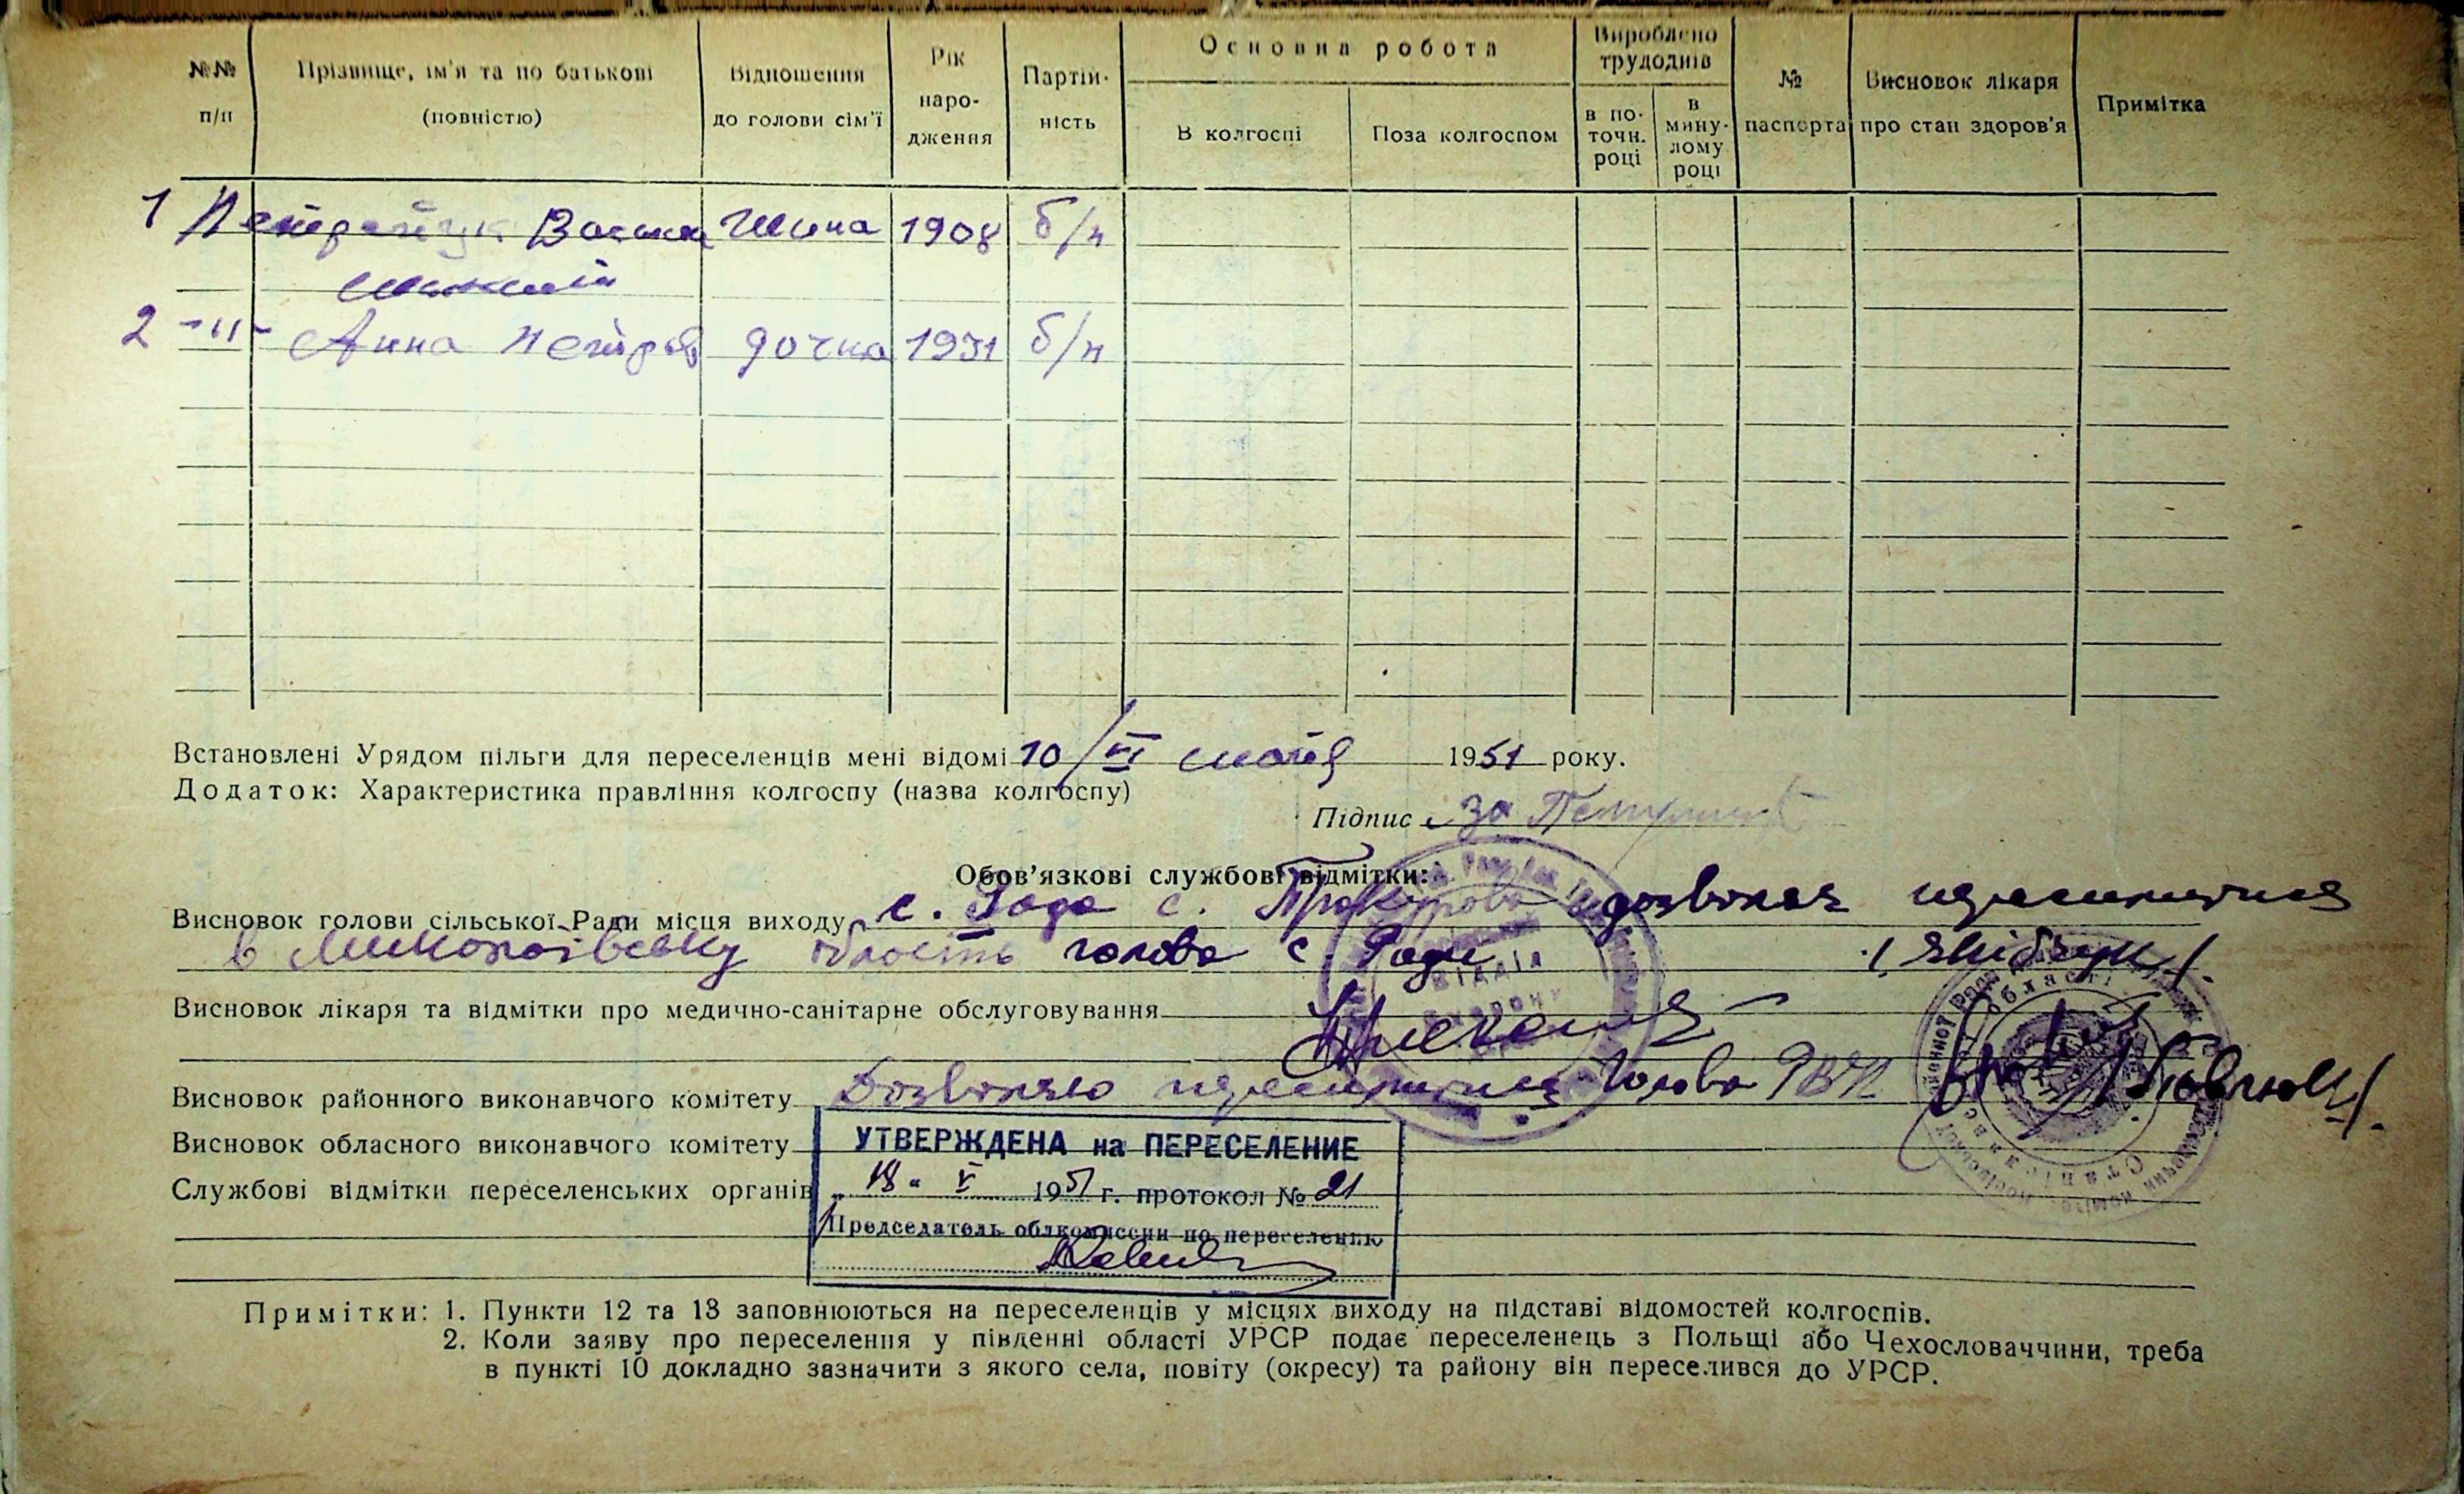 №№ п/п
Прізвище, ім'я та по батькові (повністю)
Відношення до голови сім'ї
Рік народження
Партійність
Основна робота
В колгоспі
Поза колгоспом
Вироблено трудоднів
в поточн. році
в минулому році
№ паспорта
Висновок лікаря про стан здоров'я
Примітка
1 1908 б/п
2 -"- Анна дочка 1931 б/п
Встановлені Урядом пільги для переселенців мені відомі 10/ 1951 року.
Додаток: Характеристика правління колгоспу (назва колгоспу)
Підпис за
Обов'язкові службові відмітки:
Висновок голови сільської Ради місця виходу с. Рада с.
в Миколаївську область голова с. Ради
Висновок лікаря та відмітки про медично-санітарне обслуговування
Висновок районного виконавчого комітету Голова
Висновок обласного виконавчого комітету
УТВЕРЖДЕНА на ПЕРЕСЕЛЕНИЕ
Службові відмітки переселенських органів
„18" V 1951 г. протокол № 21
Председатель облкомиссии по переселению
Примітки: 1. Пункти 12 та 13 заповнюються на переселенців у місцях виходу на підставі відомостей колгоспів.
2. Коли заяву про переселення у південні області УРСР подає переселенець з Польщі або Чехословаччини, треба
в пункті 10 докладно зазначити з якого села, повіту (окресу) та району він переселився до УРСР.